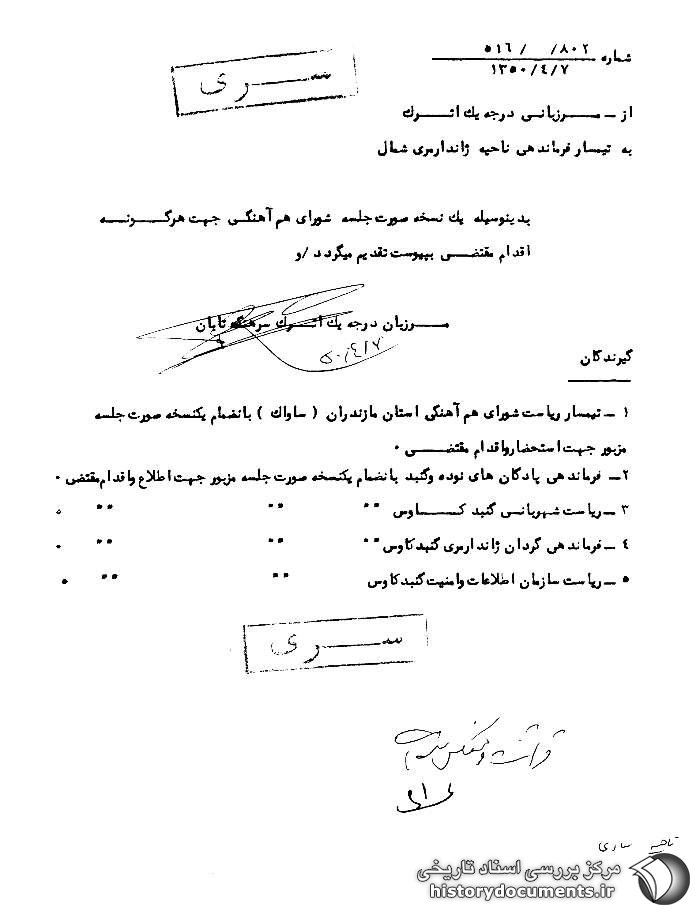 شماره ٨٠٢/ /٥١٦
١٣٥٠/٤/٧
سری
از ــ مــرزبانی درجه یک اتــرک
به تیمسار فرماندهی ناحیه ژاندارمری شمال
بدینوسیله یک نسخه صورت جلسه شورای هم آهنگی جهت هرگــونــه
اقدام مقتضــی بپیوست تقدیم میگردد /و
مــرزبان درجه یک اتــرک سرهنگ تابان
٥٠/٤/٧
گیرندگان
١ ــ تیمسار ریاست شورای هم آهنگی استان مازندران ( ساواک ) بانضمام یکنسخه صورت جلسه
مزبور جهت استحضار واقدام مقتضــی ٠
٢ــ فرماندهی پادگان های نوده وگنبد بانضمام یکنسخه صورت جلسه مزبور جهت اطلاع واقدام مقتضی ٠
٣ ــ ریاست شهربانــی گنبد کــاوس " " " ٠
٤ ــ فرماندهی گردان ژاندارمری گنبدکاوس " " " ٠
٥ ــ ریاست سازمان اطلاعات وامنیت گنبدکاوس " " ٠
سری
ناحیه ساری
مرکز بررسی اسناد تاریخی
historydocuments.ir